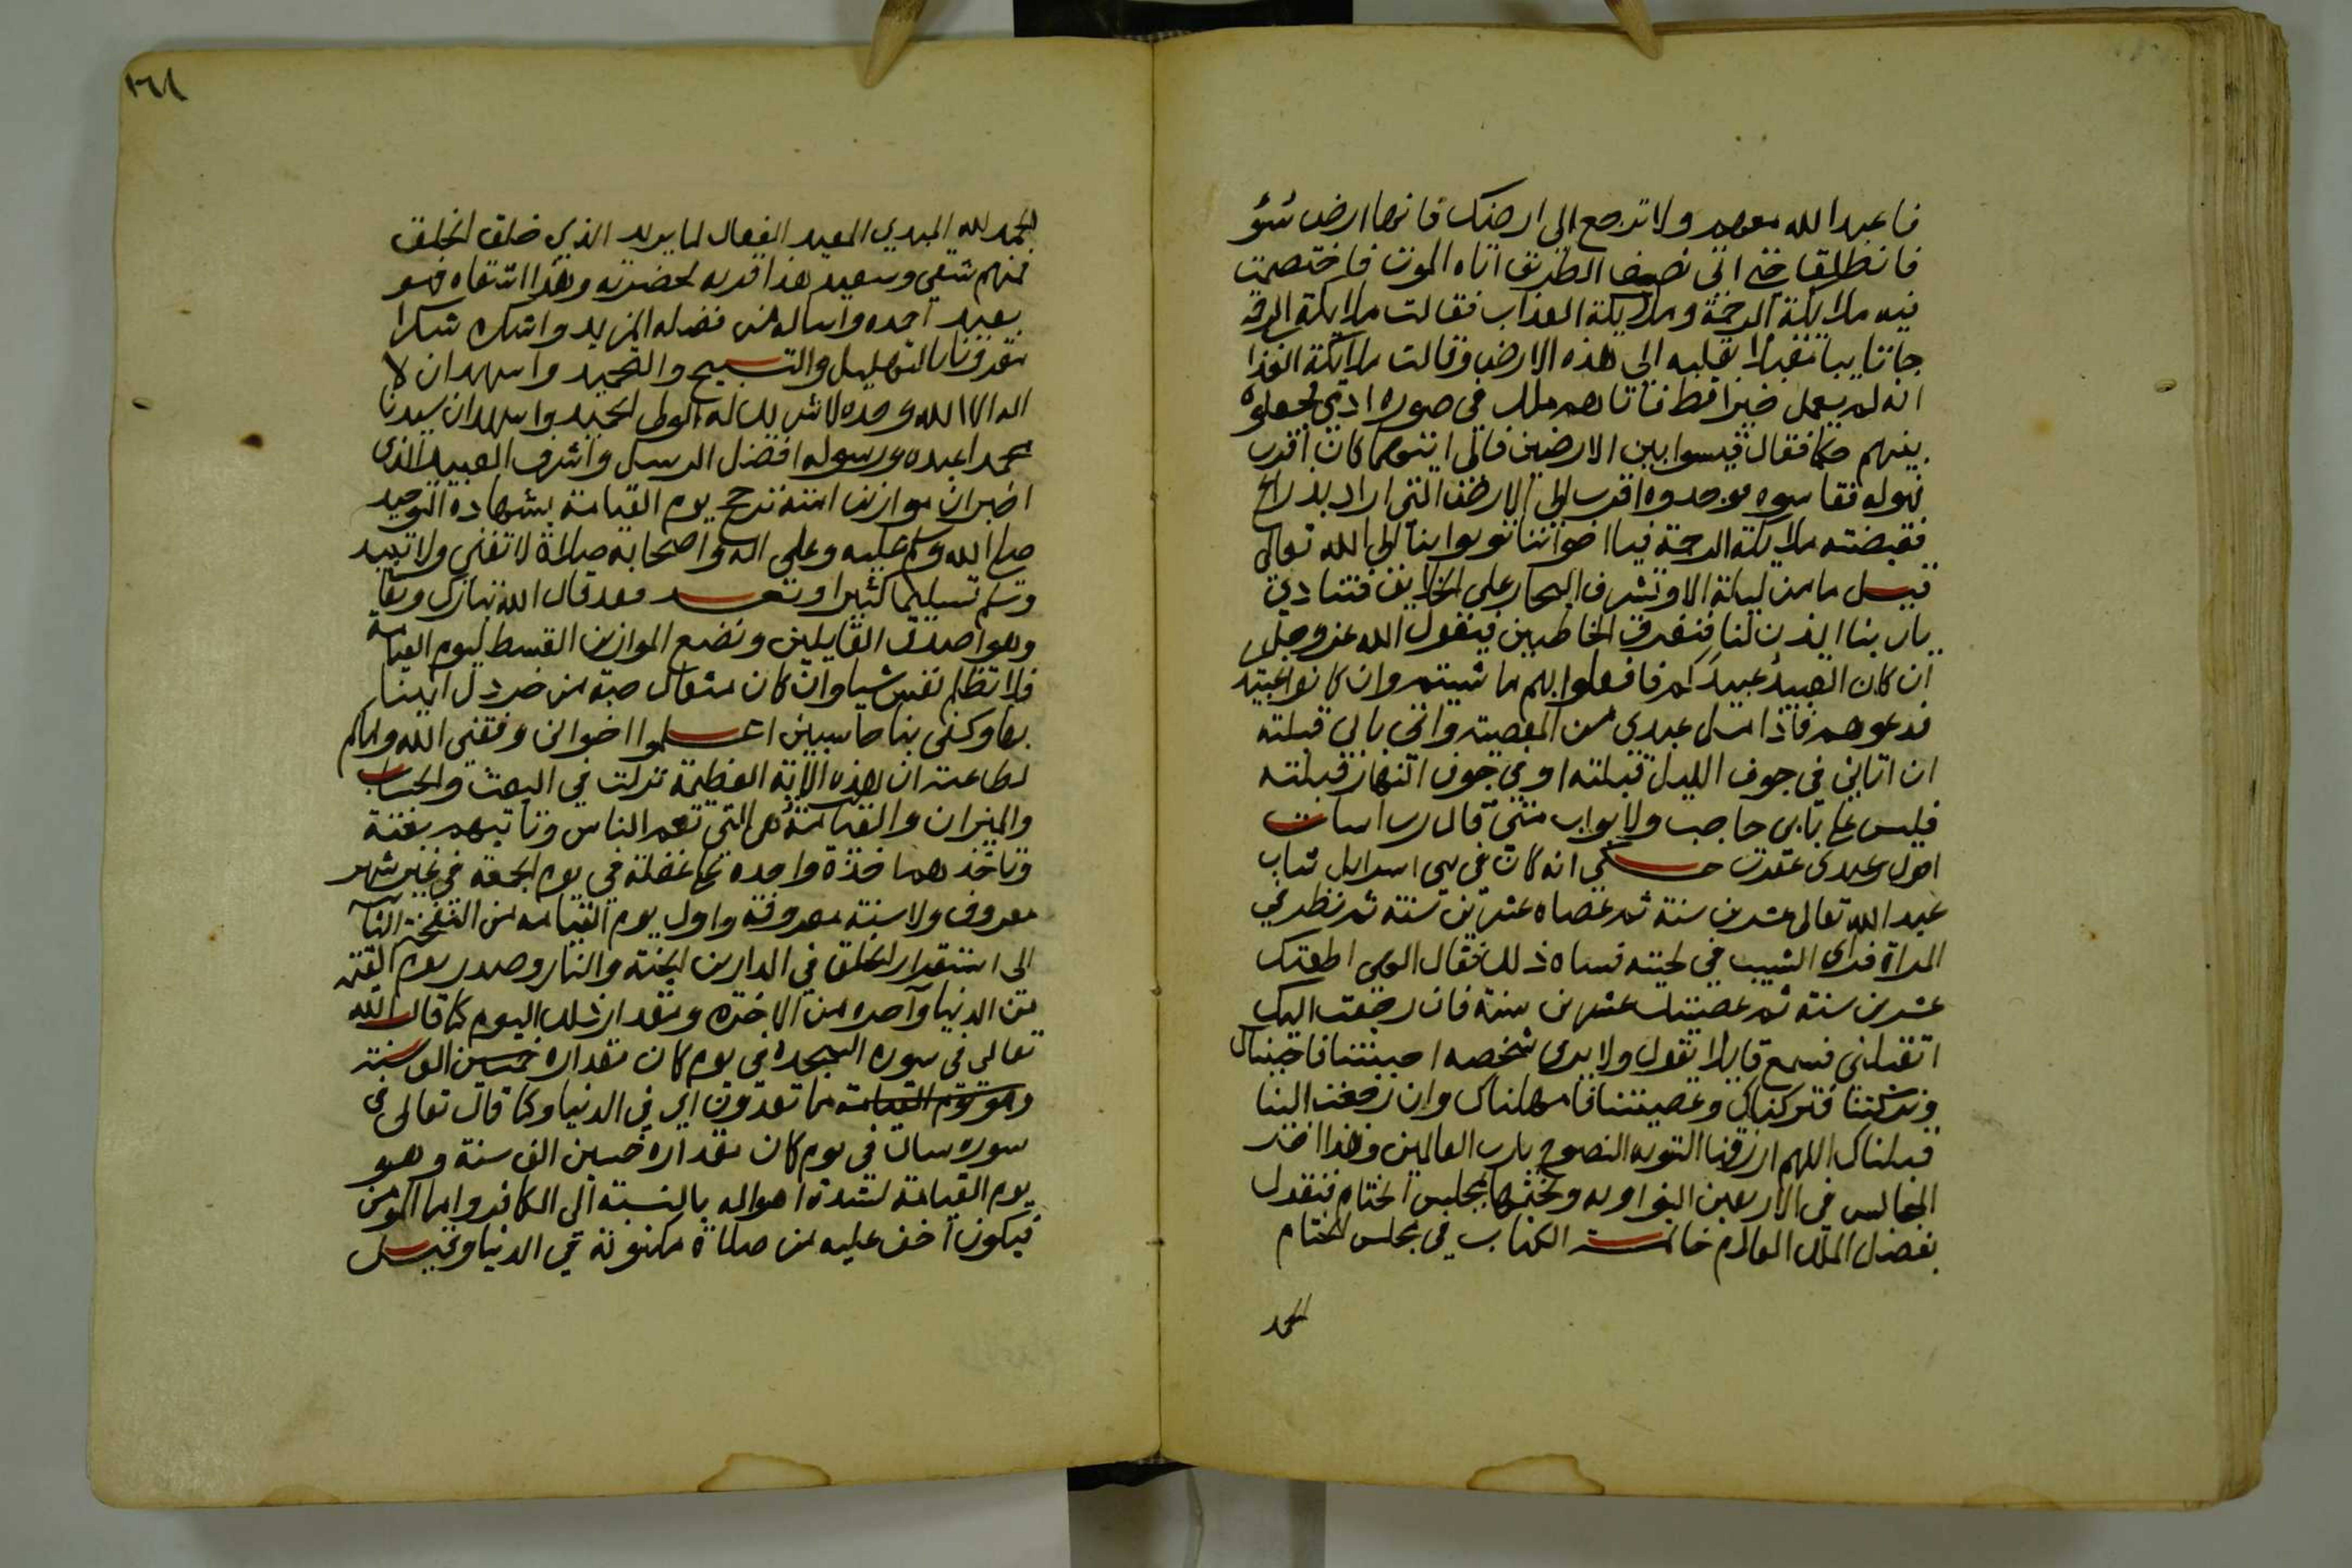 فاعبد الله معهم ولا ترجع الى ارضك فانها ارض سؤ
فانطلق حتى اتى نصف الطريق اتاه الموت فاختصمت
فيه ملايكة الرحمة وملايكة العذاب فقالت ملايكة الرحمة
جانا يبا مقبلا بقلبه الى هذه الارض وقالت ملايكة العذا
انه لم يعمل خيرا قط فاتاهم ملك في صورة ادمي فجعلوه
بينهم حكما فقال قيسوا بين الارضين فالى ايتهما كان اقرب
فهو له فقاسوه فوجدوه اقرب الى الارض التي اراد بذراع
فقبضته ملايكة الرحمة فيا اخواننا توبوا بنا الى الله تعالى
قيل ما من ليلة الا وتشرف البحار على الخلايق فتنادي
يا ربنا ايذن لنا فنغرق الخاطيين فيقول الله عز وجل
ان كان العبيد عبيدكم فافعلوا بهم ما شيتم وان كانوا عبيد
فدعوهم فاذا مل عبدي من المعصية واتى بابي قبلته
ان اتاني في جوف الليل قبلته او في جوف النهار قبلته
فليس على بابي حاجب ولا بواب متى قال رب اسات
اقول عبدي غفرت حكي انه كان في بني اسرايل شاب
عبد الله تعالى عشرين سنة ثم عصاه عشرين سنة ثم نظر في
المراة فراى الشيب في لحيته فساه ذلك فقال الهي اطعتك
عشرين سنة ثم عصيتك عشرين سنة فان رجعت اليك
اتقبلني فسمع قايلا يقول ولا يرى شخصه احببتنا فاحببناك
وتركتنا فتركناك وعصيتنا فامهلناك وان رجعت الينا
قبلناك اللهم ارزقنا التوبة النصوح يا رب العالمين وهذا اخر
المجالس في الاربعين النواوية ونختمها بمجلس الختام فنقول
بفضل الملك العلام خاتمة الكتاب في مجلس الختام
الحمد
١٦٨
الحمد لله المبدي المعيد الفعال لما يريد الذي خلق الخلق
فمنهم شقي وسعيد هذا قربه لحضرته وهذا اشقاه فهو
بعيد احمده واساله من فضله المزيد واشكره شكرا
مقرونا بالتهليل والتسبيح والتحميد واشهد ان لا
اله الا الله وحده لا شريك له الولي الحميد واشهد ان سيدنا
محمدا عبده ورسوله افضل الرسل واشرف العبيد الذي
اخبر ان موازين امته ترجح يوم القيامة بشهادة التوحيد
صلى الله وسلم عليه وعلى اله واصحابه صلاة لا تفنى ولا تبيد
وسلم تسليما كثيرا وبعد فقد قال الله تبارك وتعا
وهو اصدق القايلين ونضع الموازين القسط ليوم القيامة
فلا تظلم نفس شيا وان كان مثقال حبة من خردل اتينا
بها وكفى بنا حاسبين اعلموا اخواني وفقني الله واياكم
لطاعته ان هذه الاية العظيمة نزلت في البعث والحساب
والميزان والقيامة هي التي تعم الناس وتاتيهم بغتة
وتاخذهم اخذة واحدة على غفلة في يوم الجمعة في غير شهر
معروف ولا سنة معروفة واول يوم القيامة من النفخة الثا
الى استقرار الخلق في الدارين الجنة والنار وصدر يوم القيمة
من الدنيا واخره من الاخرة ومقدار ذلك اليوم كما قال الله
تعالى في سورة السجدة في يوم كان مقداره خمسين الف سنة
وهو يوم القيامة مما تعدون اي في الدنيا وكما قال تعالى في
سورة سال في يوم كان مقداره خمسين الف سنة وهو
يوم القيامة لشدة اهواله بالنسبة الى الكافر واما المومن
فيكون اخف عليه من صلاة مكتوبة في الدنيا وقيل